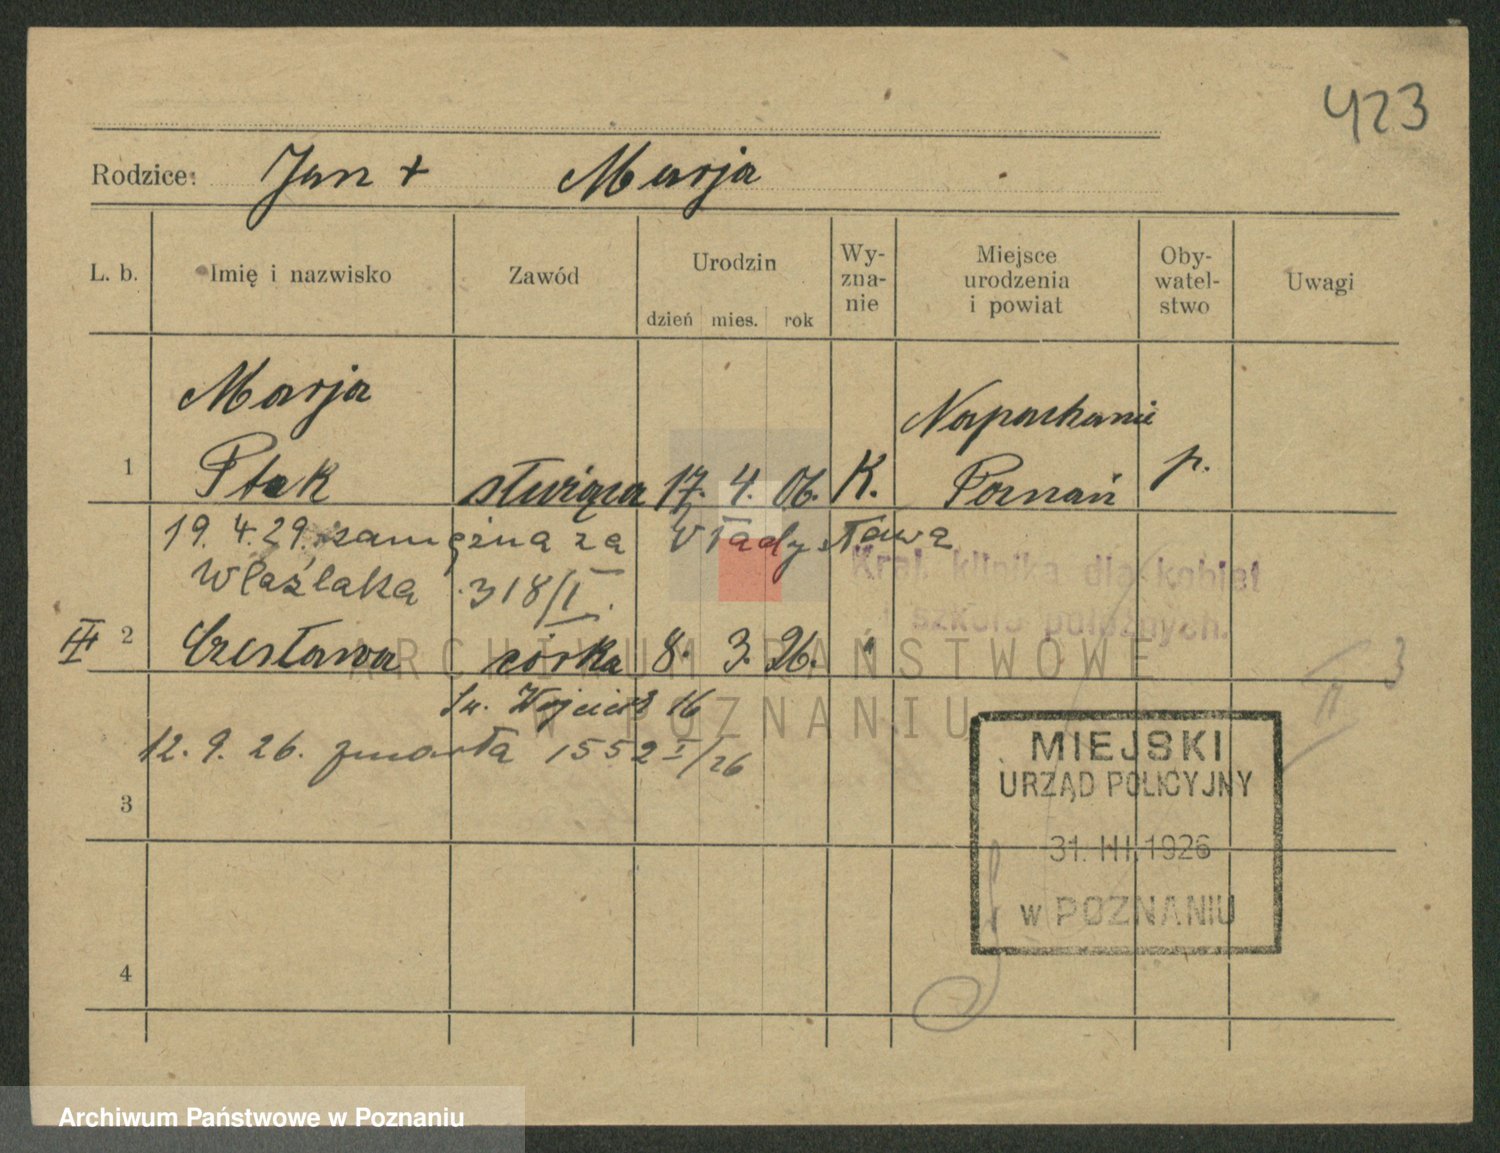 423
Rodzice: Jan + Marja
L. b. Imię i nazwisko Zawód Urodzin Wy- zna- nie Miejsce urodzenia i powiat Oby- watel- stwo Uwagi
dzień mies. rok
Marja Napachanie
1 Ptak służąca 17. 4. 06. K. Poznań p.
19. 4. 29. zamężna za Władysława
Wlaźlaka 318/I.
Kraj. klinika dla kobiet
i szkoła położnych.
III 2 Czesława córka 8. 3. 26. "
Św. Wojciech 16
12. 9. 26. zmarła 1552 I/26
II 3
3
MIEJSKI
URZĄD POLICYJNY
31. III. 1926
w POZNANIU
4
ARCHIWUM PAŃSTWOWE
W POZNANIU
Archiwum Państwowe w Poznaniu